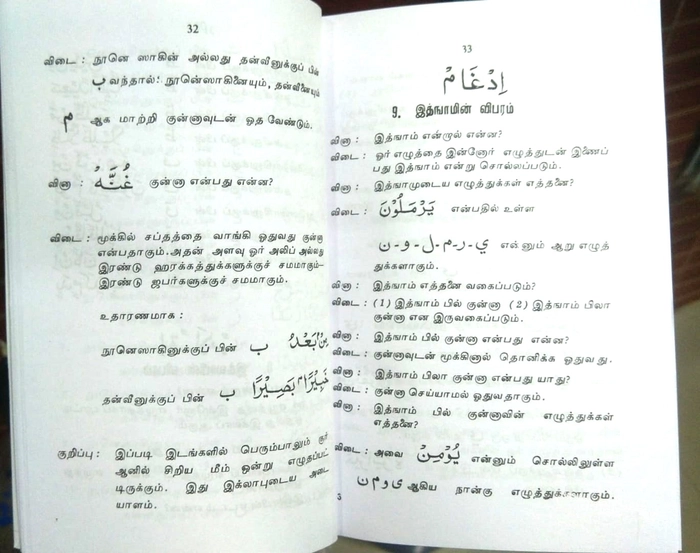 32
விடை : நூனெ ஸாகின் அல்லது தன்வீனுக்குப் பின்
ب வந்தால்! நூன்ஸாகினையும், தன்வீனையும்
م ஆக மாற்றி குன்னாவுடன் ஓத வேண்டும்.
வினா : غُنَّه குன்னா என்பது என்ன?
விடை : மூக்கில் சப்தத்தை வாங்கி ஓதுவது குன்னா
என்பதாகும். அதன் அளவு ஓர் அலிப் அல்லது
இரண்டு ஹரக்கத்துக்களுக்குச் சமமாகும்-
இரண்டு ஜபர்களுக்குச் சமமாகும்.
உதாரணமாக :
நூனெஸாகினுக்குப் பின் ب مِنْۢ بَعْدُ
தன்வீனுக்குப் பின் ب خَبِيْرًاۢ بَصِيْرًا
குறிப்பு : இப்படி இடங்களில் பெரும்பாலும் குர்
ஆனில் சிறிய மீம் ஒன்று எழுதப்பட்
டிருக்கும். இது இக்லாபுடைய அடை
யாளம்.
33
اِدْغَامْ
9. இத்ஙாமின் விபரம்
வினா : இத்ஙாம் என்றால் என்ன?
விடை : ஓர் எழுத்தை இன்னோர் எழுத்துடன் இணைப்
பது இத்ஙாம் என்று சொல்லப்படும்.
வினா : இத்ஙாமுடைய எழுத்துக்கள் எத்தனை?
விடை : يَرْمَلُوْنَ என்பதில் உள்ள
ي - ر - م - ل - و - ن என்னும் ஆறு எழுத்
துக்களாகும்.
வினா : இத்ஙாம் எத்தனை வகைப்படும்?
விடை : (1) இத்ஙாம் பில் குன்னா (2) இத்ஙாம் பிலா
குன்னா என இருவகைப்படும்.
வினா : இத்ஙாம் பில் குன்னா என்பது என்ன?
விடை : குன்னாவுடன் மூக்கினால் தொனிக்க ஓதுவது.
வினா : இத்ஙாம் பிலா குன்னா என்பது யாது?
விடை : குன்னா செய்யாமல் ஓதுவதாகும்.
வினா : இத்ஙாம் பில் குன்னாவின் எழுத்துக்கள்
எத்தனை?
விடை : அவை يُوْمِنْ என்னும் சொல்லிலுள்ள
ى و م ن ஆகிய நான்கு எழுத்துக்களாகும்.
5